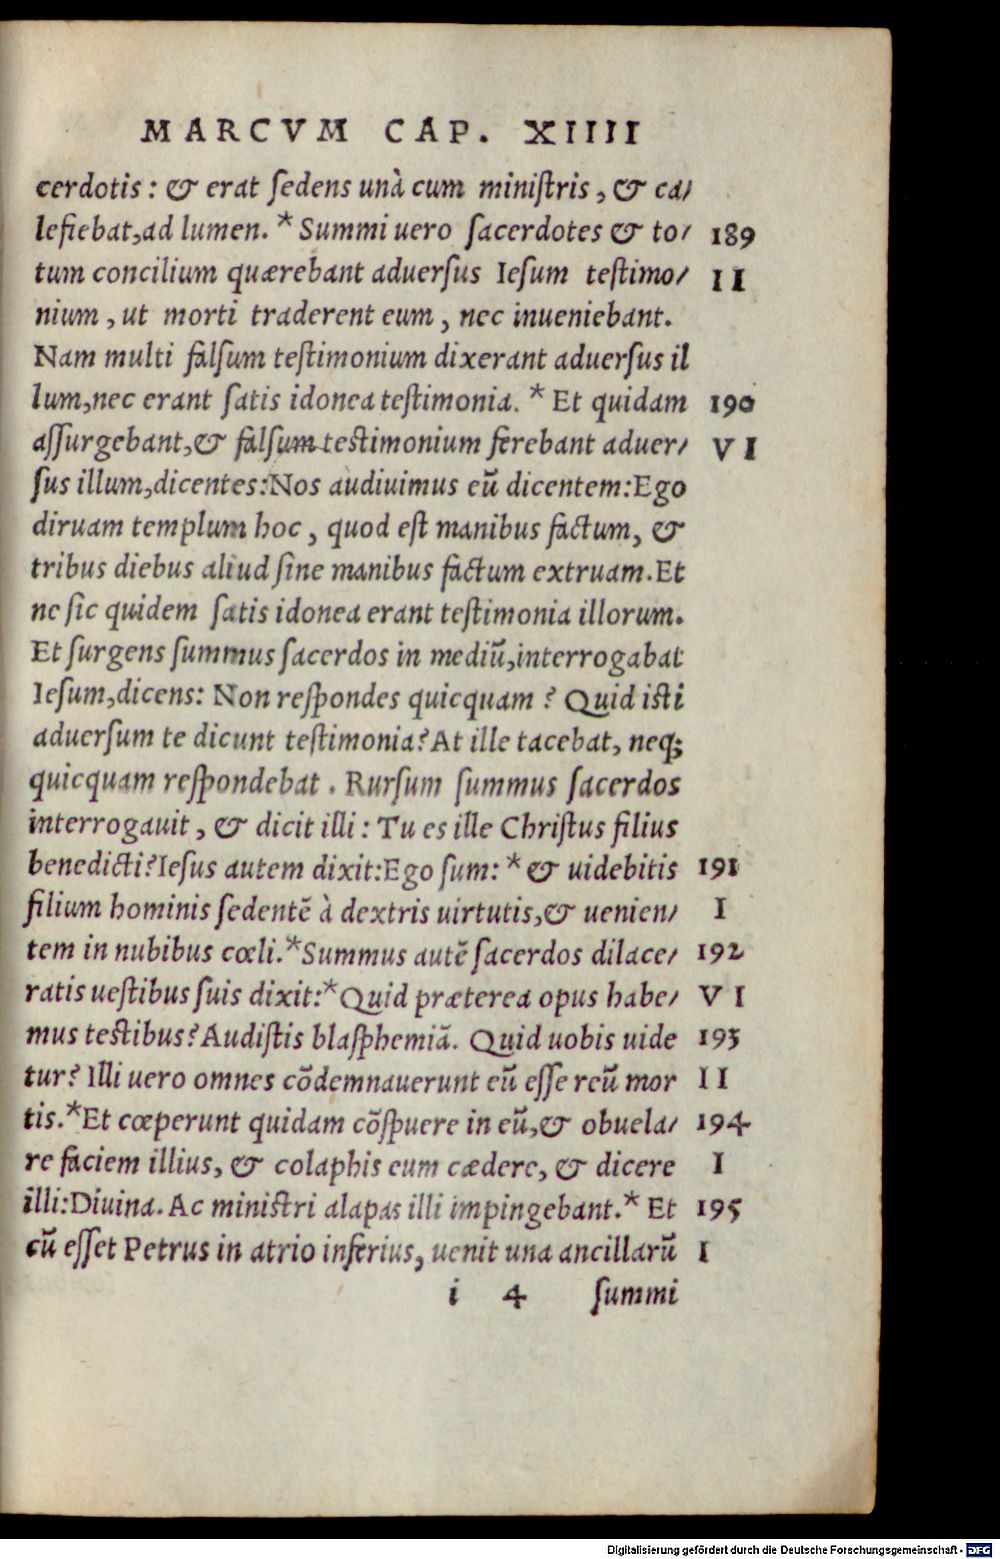 MARCVM CAP. XIIII
cerdotis: & erat ſedens unà cum miniſtris, & ca/
lefiebat, ad lumen. * Summi uero ſacerdotes & to/ 189
tum concilium quærebant aduerſus Ieſum teſtimo/ II
nium, ut morti traderent eum, nec inueniebant.
Nam multi falſum teſtimonium dixerant aduerſus il
lum, nec erant ſatis idonea teſtimonia. * Et quidam 190
aſſurgebant, & falſum teſtimonium ferebant aduer/ VI
ſus illum, dicentes: Nos audiuimus eū dicentem: Ego
diruam templum hoc, quod eſt manibus factum, &
tribus diebus aliud ſine manibus factum extruam. Et
ne ſic quidem ſatis idonea erant teſtimonia illorum.
Et ſurgens ſummus ſacerdos in mediū, interrogabat
Ieſum, dicens: Non reſpondes quicquam? Quid iſti
aduerſum te dicunt teſtimonia? At ille tacebat, neq;
quicquam reſpondebat. Rurſum ſummus ſacerdos
interrogauit, & dicit illi: Tu es ille Chriſtus filius
benedicti? Ieſus autem dixit: Ego ſum: * & uidebitis 191
filium hominis ſedentē à dextris uirtutis, & uenien/ I
tem in nubibus cœli. * Summus autē ſacerdos dilace/ 192
ratis ueſtibus ſuis dixit: * Quid præterea opus habe/ VI
mus teſtibus? Audiſtis blaſphemiā. Quid uobis uide 193
tur? Illi uero omnes cōdemnauerunt eū eſſe reū mor II
tis. * Et cœperunt quidam cōſpuere in eū, & obuela/ 194
re faciem illius, & colaphis eum cædere, & dicere I
illi: Diuina. Ac miniſtri alapas illi impingebant. * Et 195
cū eſſet Petrus in atrio inferius, uenit una ancillarū I
i 4 ſummi
Digitalisierung gefördert durch die Deutsche Forschungsgemeinschaft - DFG